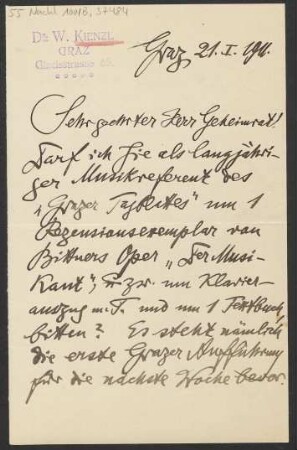 55 Nachl 100/B,
Dr. W. KIENZL
GRAZ
Graz, 21. I. 1911.
Sehr geehrter Herr Geheimrat!
Darf ich Sie als langjähri-
ger Musikreferent des
„Grazer Tagblattes" um 1
Rezensionsexemplar von
Bittners Oper „Der Musi-
kant", u. zw. um Klavier-
auszug m. T. und um 1 Textbuch
bitten? Es steht nämlich
die erste Grazer Aufführung
für die nächste Woche bevor.